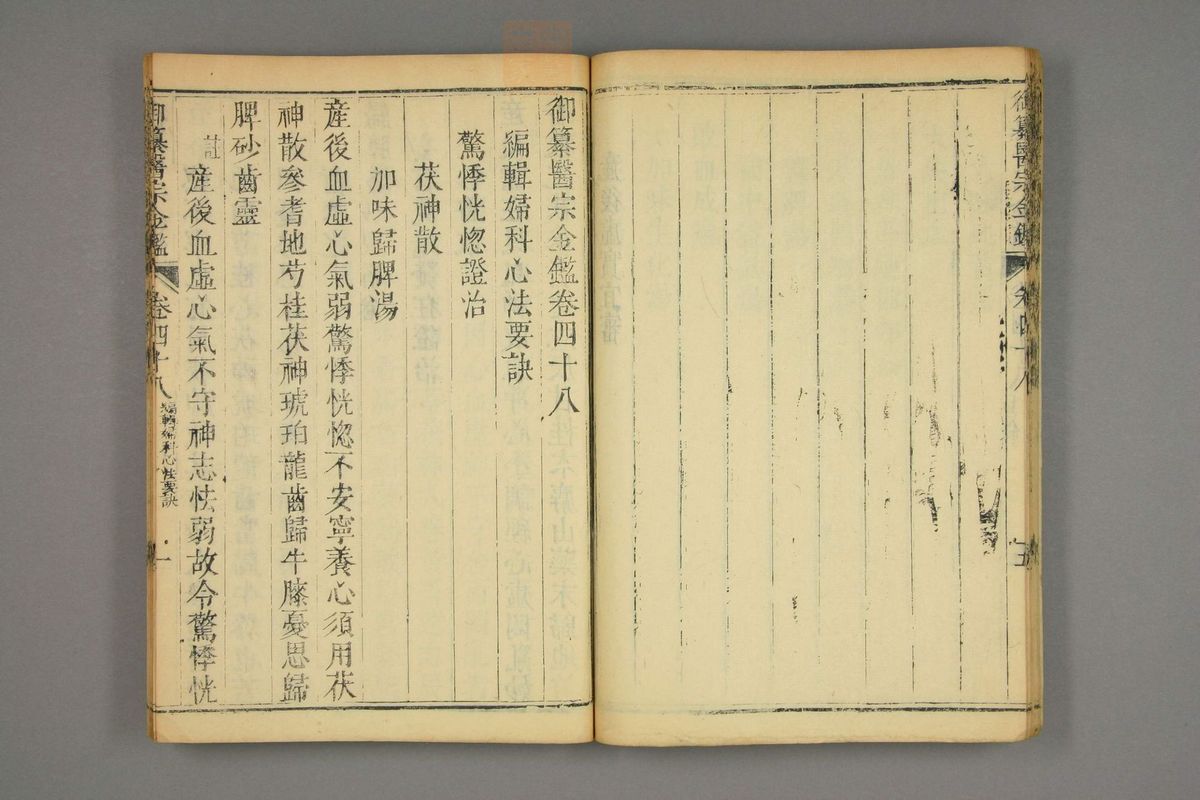 御纂醫宗金鑑卷四十八
編輯婦科心法要訣
驚悸恍惚證治
茯神散
加味歸脾湯
産後血虛心氣弱驚悸恍惚不安寧養心須用茯
神散參耆地芍桂茯神琥珀龍齒歸牛膝憂思歸
脾砂齒靈
註
産後血虛心氣不守神志怯弱故令驚悸恍
御纂醫宗金鑑
卷四十八
編輯婦科心法要訣
一
五